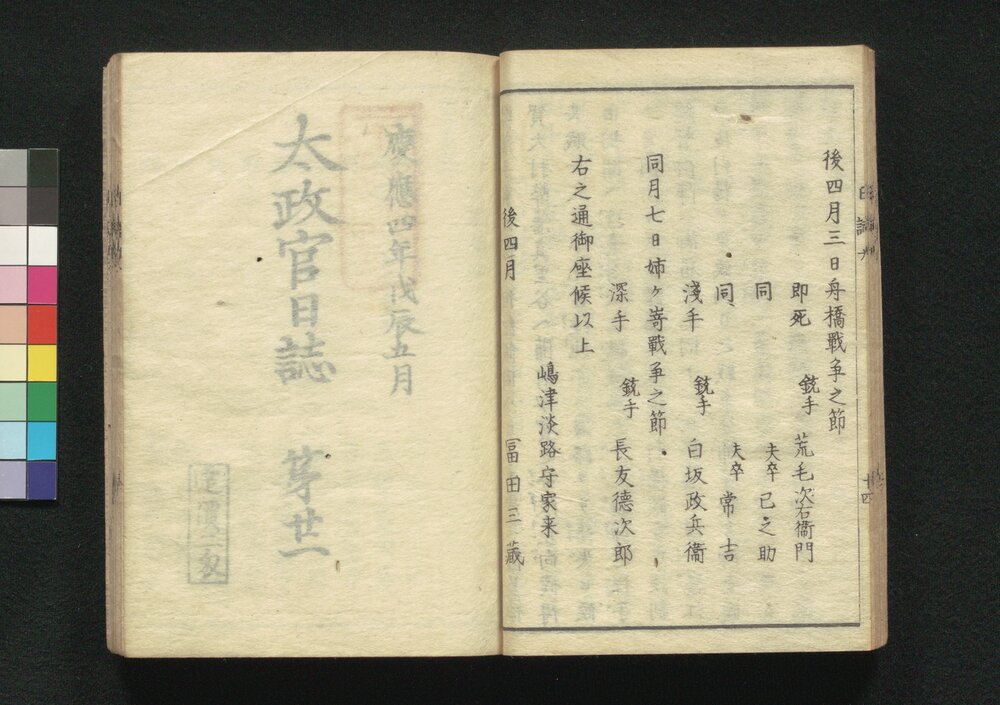 後四月三日舟橋戰争之節
即死 銃手 荒毛次右衞門
同 夫卒 已之助
同 夫卒 常吉
淺手 銃手 白坂政兵衞
同月七日姉ヶ嵜戰争之節
深手 銃手 長友德次郎
右之通御座候以上
嶋津淡路守家来
後四月 冨田三蔵
慶應四年戊辰五月
太政官日誌 苐廿一